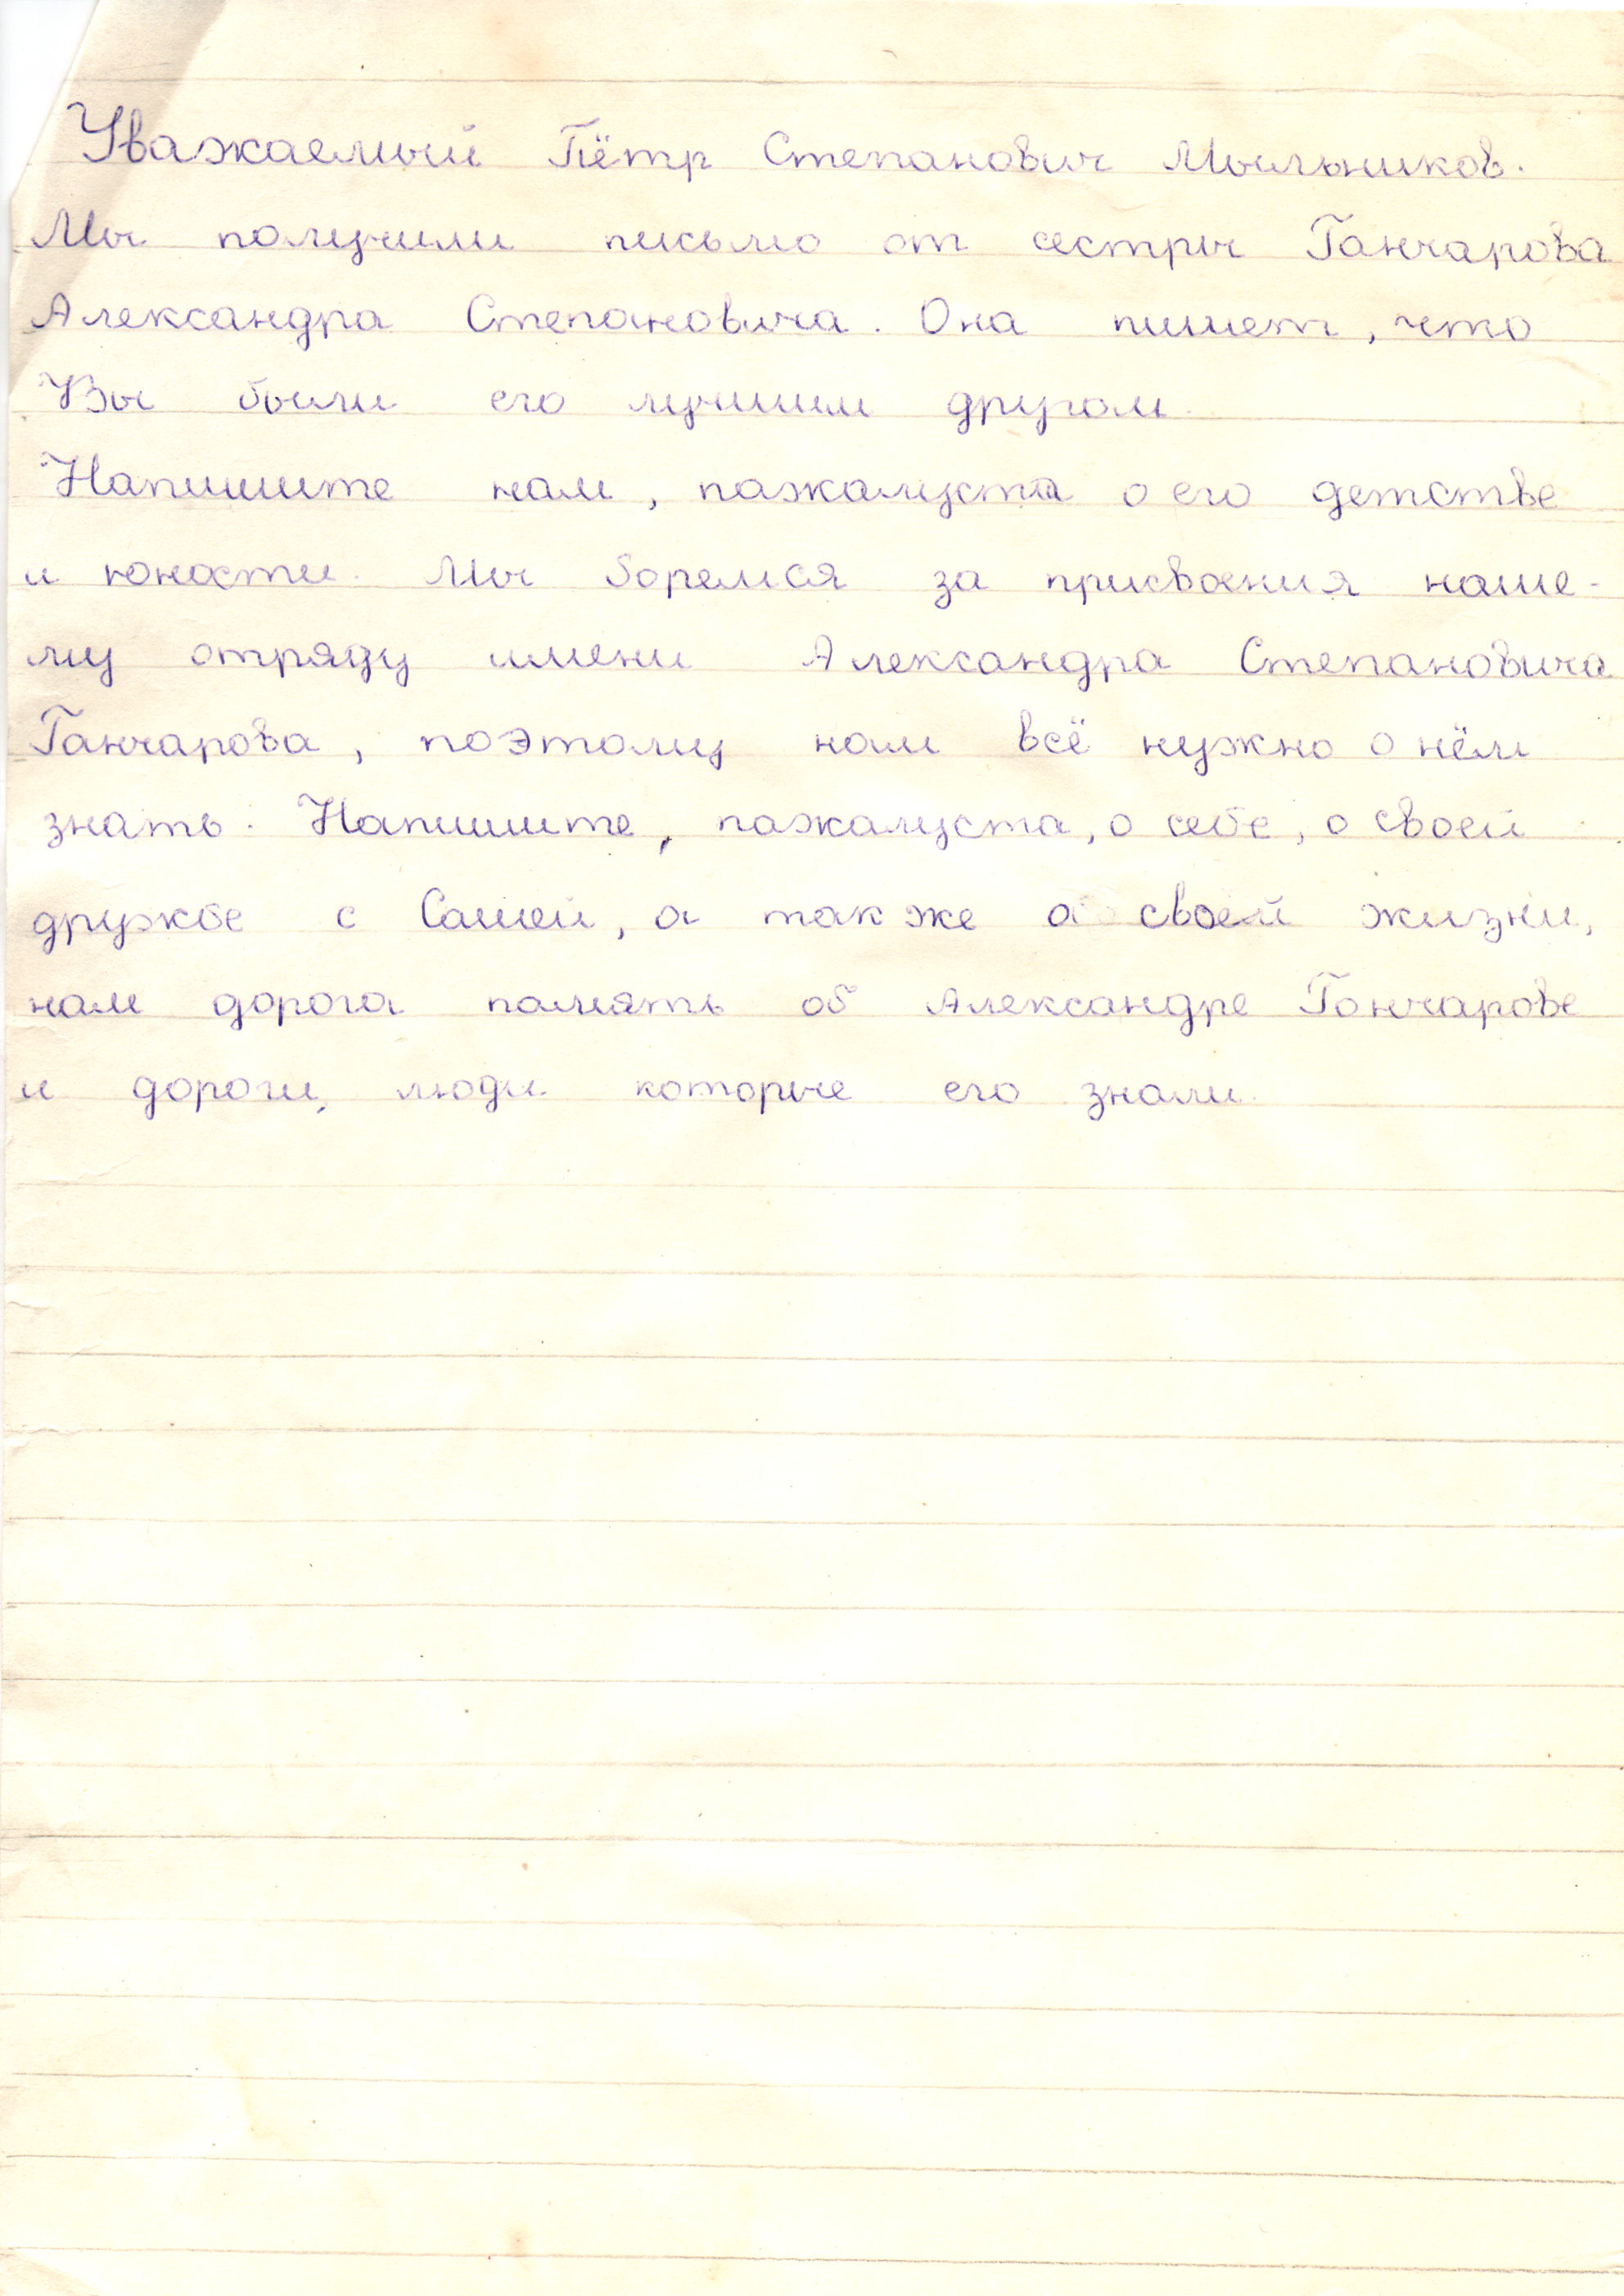 Уважаемый Пётр Степанович Мыльников.
Мы получили письмо от сестры Ганчарова
Александра Степановича. Она пишет, что
Вы были его лучшим другом.
Напишите нам, пажалуста о его детстве
и юности. Мы боремся за присвоения наше-
му отряду имени Александра Степановича
Ганчарова, поэтому нам всё нужно о нём
знать. Напишите, пажалуста, о себе, о своей
дружбе с Сашей, а так же о своей жизни,
нам дорога память об Александре Гончарове
и дороги, люди которые его знали.